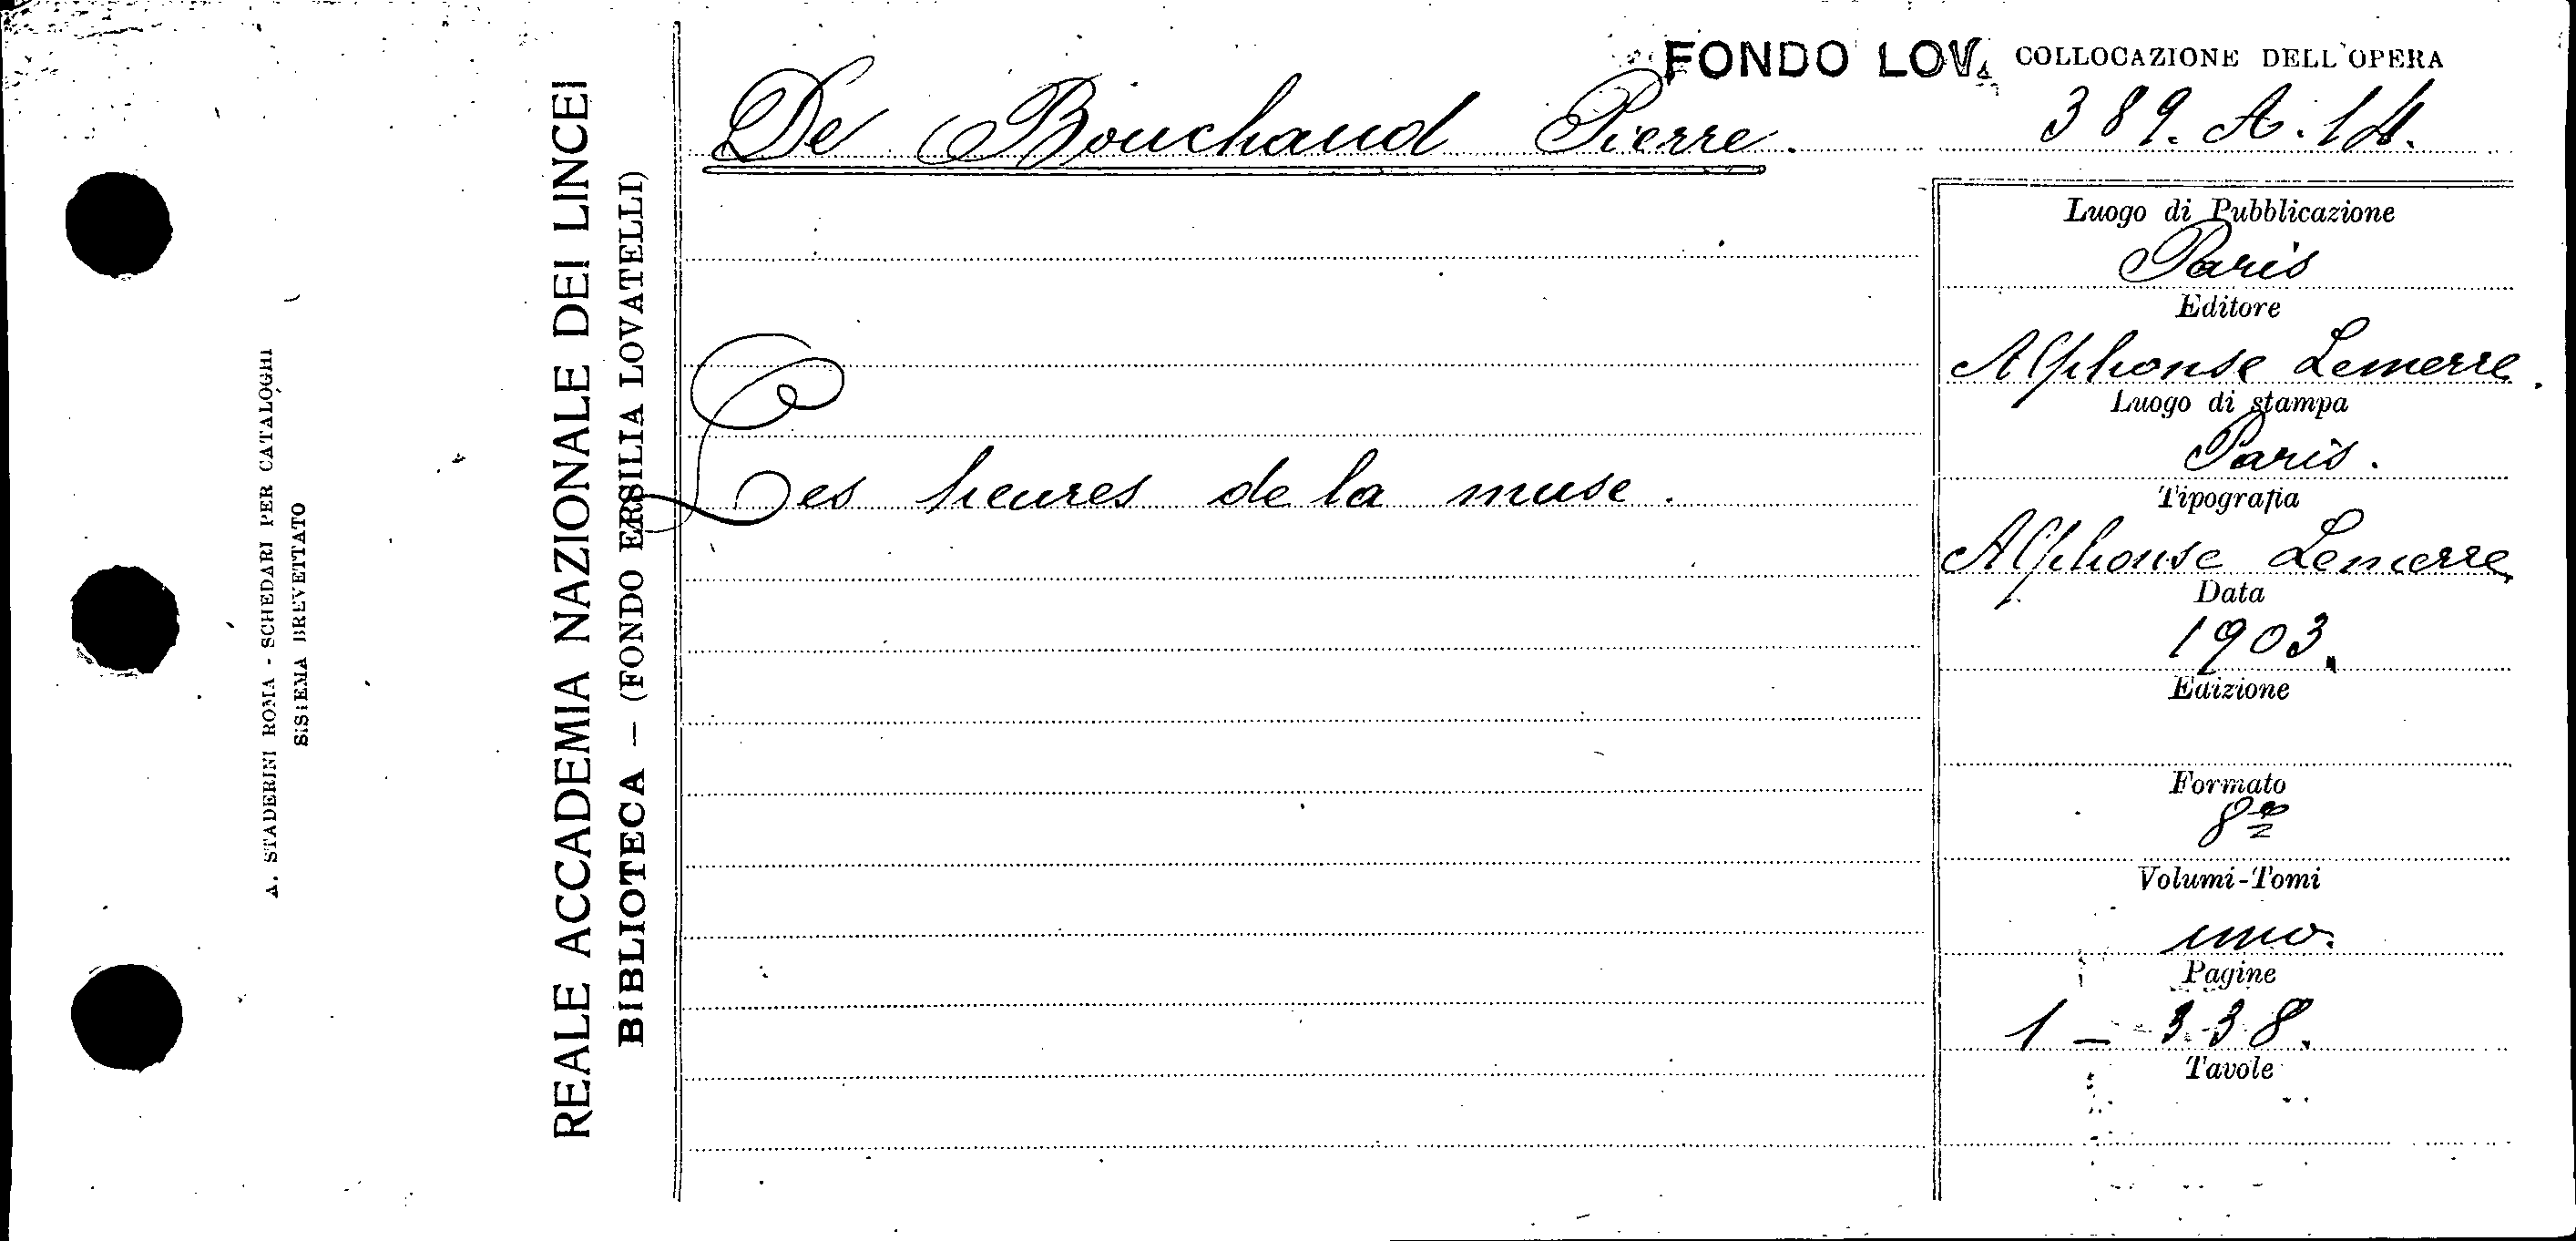 A. STADERINI ROMA - SCHEDARI PER CATALOGHI
SISTEMA BREVETTATO
REALE ACCADEMIA NAZIONALE DEI LINCEI
BIBLIOTECA — (FONDO ERSILIA LOVATELLI)
FONDO LOV. COLLOCAZIONE DELL'OPERA
De Bouchaud Pierre. 389. A. 14.
Les heures de la muse.
Luogo di Pubblicazione
Paris
Editore
Alphonse Lemerre.
Luogo di stampa
Paris.
Tipografia
Alphonse Lemerre
Data
1903.
Edizione
Formato
8º
Volumi-Tomi
uno.
Pagine
1 - 338.
Tavole